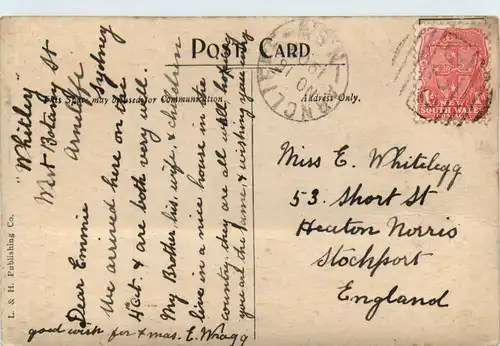 POST CARD
This Space may be used for Communication
Address Only.
NEW
SOUTH WALES
POSTAGE
ARNCLIFFE
N.S.W
L. & H. Publishing Co.
"Whitley"
West Botany St
Arncliffe
Sydney
Dear Emmie
We arrived here on the
4 Oct. & are both very well.
My Brother his wife, & children
live in a nice house in the
country. they are all well, hoping
you all are the same, & wishing you every
good wish for Xmas. E. Wragg
Miss E. Whitelegg
53. Short St
Heaton Norris
Stockport
England